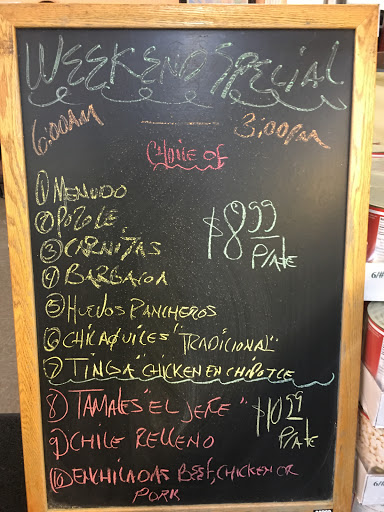 WEEKEND SPECIAL
6:00AM — 3:00pm
CHOIE OF
① MENUDO
② POZOLE
③ CARNITAS
④ BARBACOA
$8.99 Plate
⑤ HUEVOS RANCHEROS
⑥ CHICAQUILES "TRADICIONAL"
⑦ TINGA "CHICKEN EN CHIPOTLE
8) TAMALES "EL JEFE"
9) CHILE RELLENO
$10.99 Plate
10) ENCHILADAS BEEF, CHICKEN OR
PORK